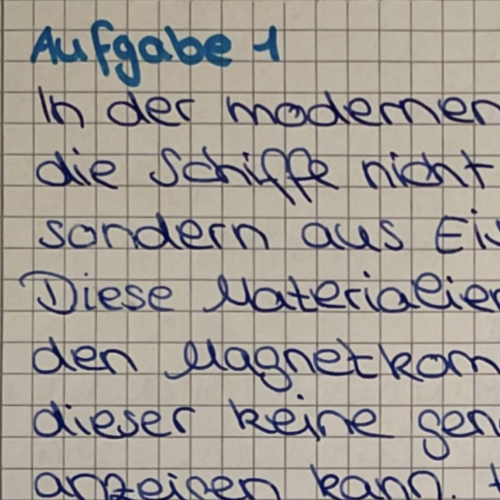 Aufgabe 1
In der modernen
die Schiffe nicht
sondern aus Eis
Diese Materialien
den Magnetkom
dieser keine gen
anzeigen kann.